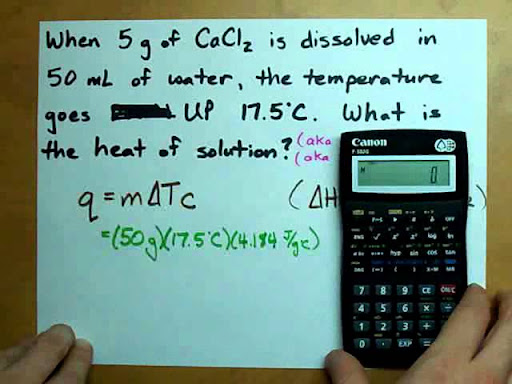 When 5 g of CaCl₂ is dissolved in
50 mL of water, the temperature
goes UP 17.5°C. What is
the heat of solution? (aka
(aka
q = mΔTc (ΔH )
= (50g)(17.5°C)(4.184 J/g°C)
Canon
M 0
7 8 9 CE ON/C
4 5 6 ×
1 2 3 +
0 · EXP =